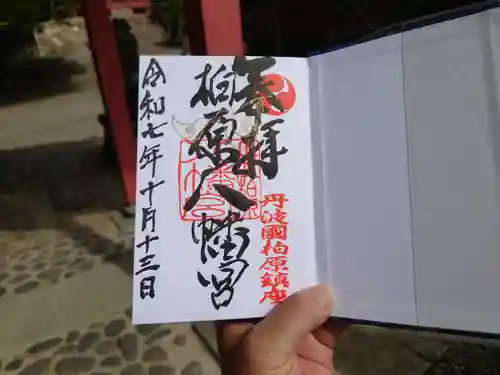 奉拝
丹波國柏原鎮座
柏原八幡宮
令和七年十月十三日